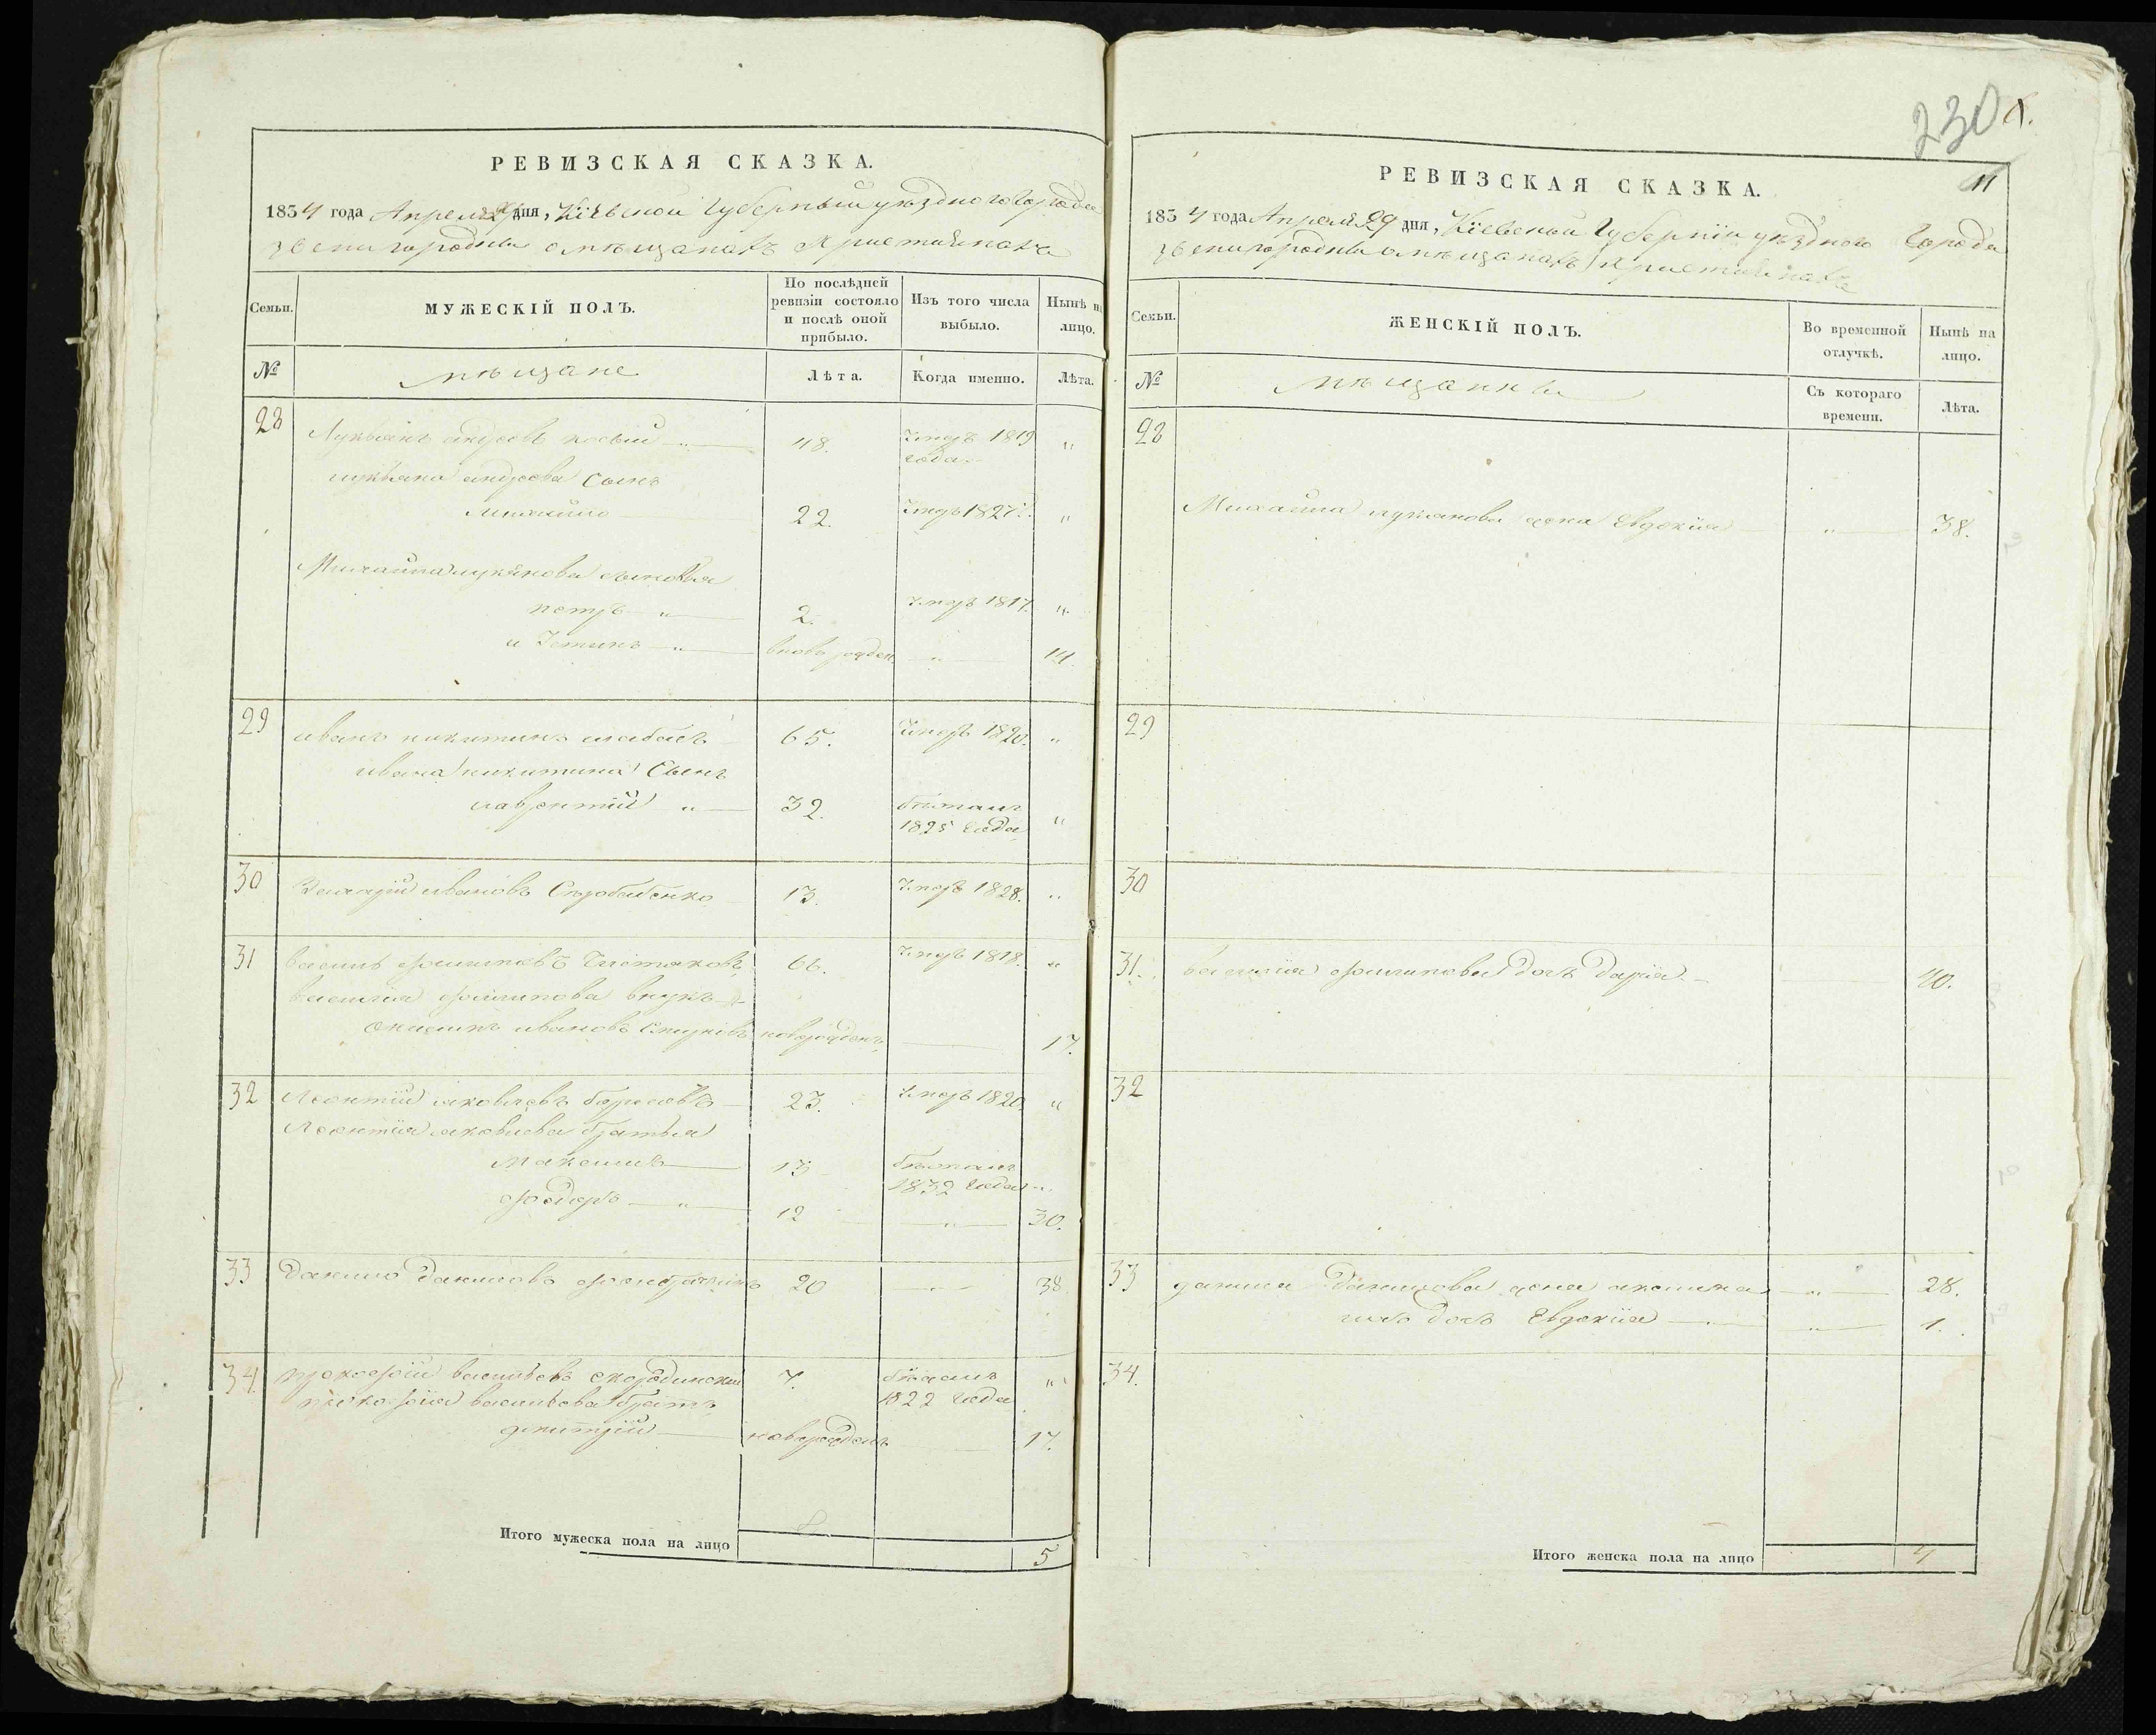 РЕВИЗСКАЯ СКАЗКА.
1834 года Апреля 29 дня, Кіевской Губерніи уѣзднаго Города
Звенигородки о мѣщанахъ Християнахъ
Семьи.
МУЖЕСКІЙ ПОЛЪ.
По послѣдней ревизіи состояло и послѣ оной прибыло.
Изъ того числа выбыло.
Нынѣ на лицо.
№
мѣщане
Лѣта.
Когда именно.
Лѣта.
28
Лукьянъ 48. Умеръ 1819 года „
Сынъ
Михайло 22. Умеръ 1827 „
Михайла Лукянова сыновья
петръ „ 2. Умеръ 1817. „
и Устинъ „ вновь рожден „ 14.
29
иванъ никитинъ 65. Умеръ 1820. „
ивана никитина Сынъ
лаврентій „ 32. бѣжалъ 1825 Года „
30
ивановъ 13. Умеръ 1828. „
31
василь филиповъ 66. Умеръ 1818. „
василия филипова внукъ
ивановъ новорожденъ 17.
32
Леонтій яковлевъ 23. Умеръ 1820. „
Леонтия яковлева братья
Максимъ 13 бѣжалъ 1832 Года „
федоръ „ 12 „ 30.
33
Данило Даниловъ 20 „ 38
34.
прокофій васильевъ 7. бѣжалъ 1822 Года „
прокофия васильева братъ
дмитрій новорожденъ 17.
Итого мужеска пола на лицо 5
230
11
РЕВИЗСКАЯ СКАЗКА.
1834 года Апреля 29 дня, Кіевской Губерніи уѣзднаго Города
Звенигородки о мѣщанахъ Християнахъ
Семьи.
ЖЕНСКІЙ ПОЛЪ.
Во временной отлучкѣ.
Нынѣ на лицо.
№
мѣщанки
Съ котораго времени.
Лѣта.
28
Михайла лукянова жена Евдокия „ 38.
29
30
31.
василия филипова дочь дария 40.
32
33
данила Данилова жена „ 28.
ихъ дочь Евдокия „ 1.
34.
Итого женска пола на лицо 4